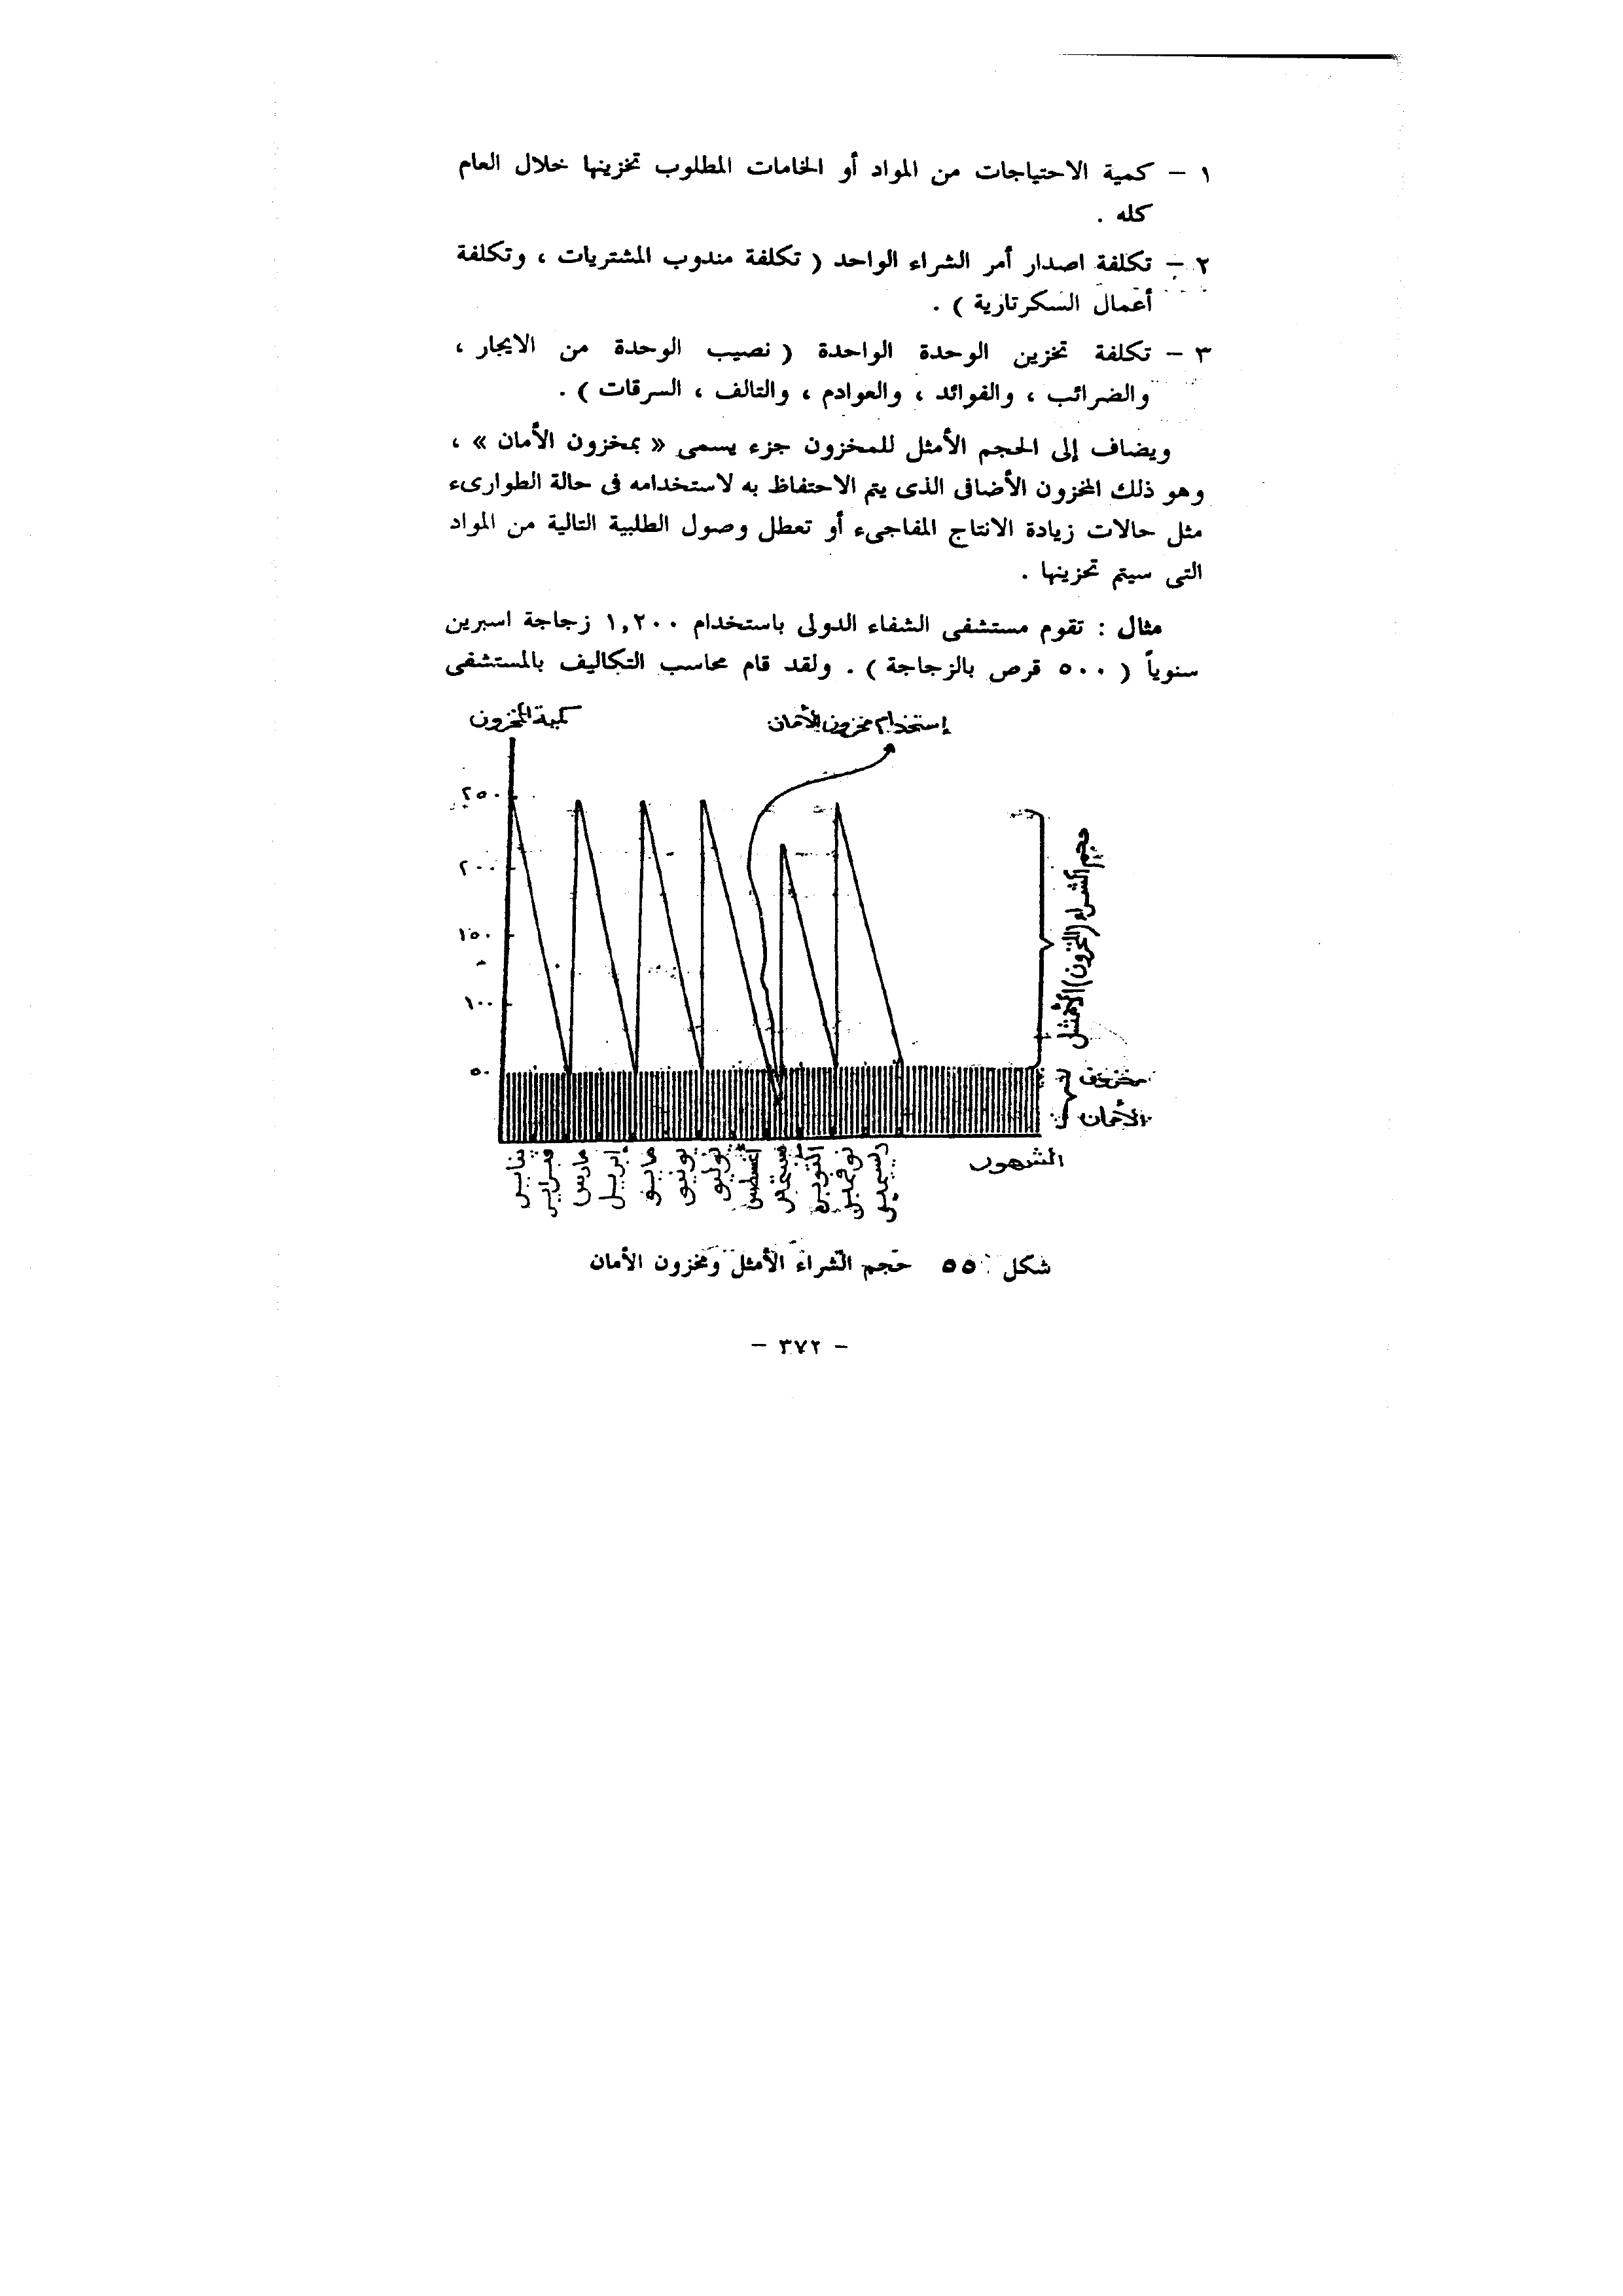 ١ – كمية الاحتياجات من المواد أو الخامات المطلوب تخزينها خلال العام
كله .
٢ – تكلفة اصدار أمر الشراء الواحد ( تكلفة مندوب المشتريات ، وتكلفة
أعمال السكرتارية ) .
٣ – تكلفة تخزين الوحدة الواحدة ( نصيب الوحدة من الايجار ،
والضرائب ، والفوائد ، والعوادم ، والتالف ، السرقات ) .
ويضاف إلى الحجم الأمثل للمخزون جزء يسمى « بمخزون الأمان » ،
وهو ذلك المخزون الأضافى الذى يتم الاحتفاظ به لاستخدامه فى حالة الطوارىء
مثل حالات زيادة الانتاج المفاجىء أو تعطل وصول الطلبية التالية من المواد
التى سيتم تخزينها .
مثال : تقوم مستشفى الشفاء الدولى باستخدام ١,٢٠٠ زجاجة اسبرين
سنوياً ( ٥٠٠ قرص بالزجاجة ) . ولقد قام محاسب التكاليف بالمستشفى
كمية المخزون
إستخدام مخزون الأمان
٢٥٠
٢٠٠
١٥٠
١٠٠
٥٠
حجم الشراء (المخزون) الأمثل
مخزون
الأمان
يناير
فبراير
مارس
إبريل
مايو
يونيو
يوليو
أغسطس
سبتمبر
أكتوبر
نوفمبر
ديسمبر
الشهور
شكل ٥٥ حجم الشراء الأمثل ومخزون الأمان
– ٣٧٢ –